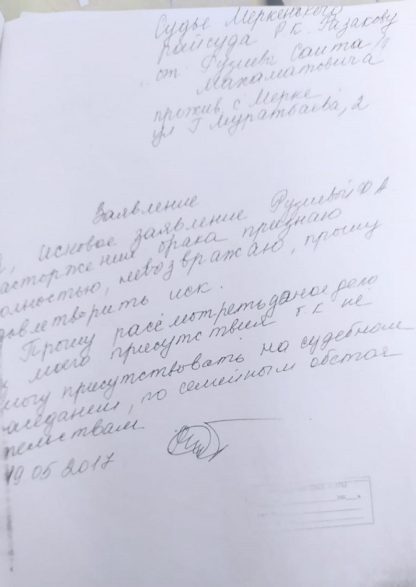 Судье Меркенского
райсуда Р.К. Разакову
от Рузиева Саита
Махаматовича
прожив. с Мерке
ул Г Муратбаева, 2
Заявление
, исковое заявление Рузиевой Ф А
асторжении брака признаю
олностью, невозвражаю, прошу
довлетворить иск.
Прошу рассмотреть даное дело
моего присутствия т к не
могу присутствовать на судебном
аседании, по семейным обстоя
тельствам
19 05 2017